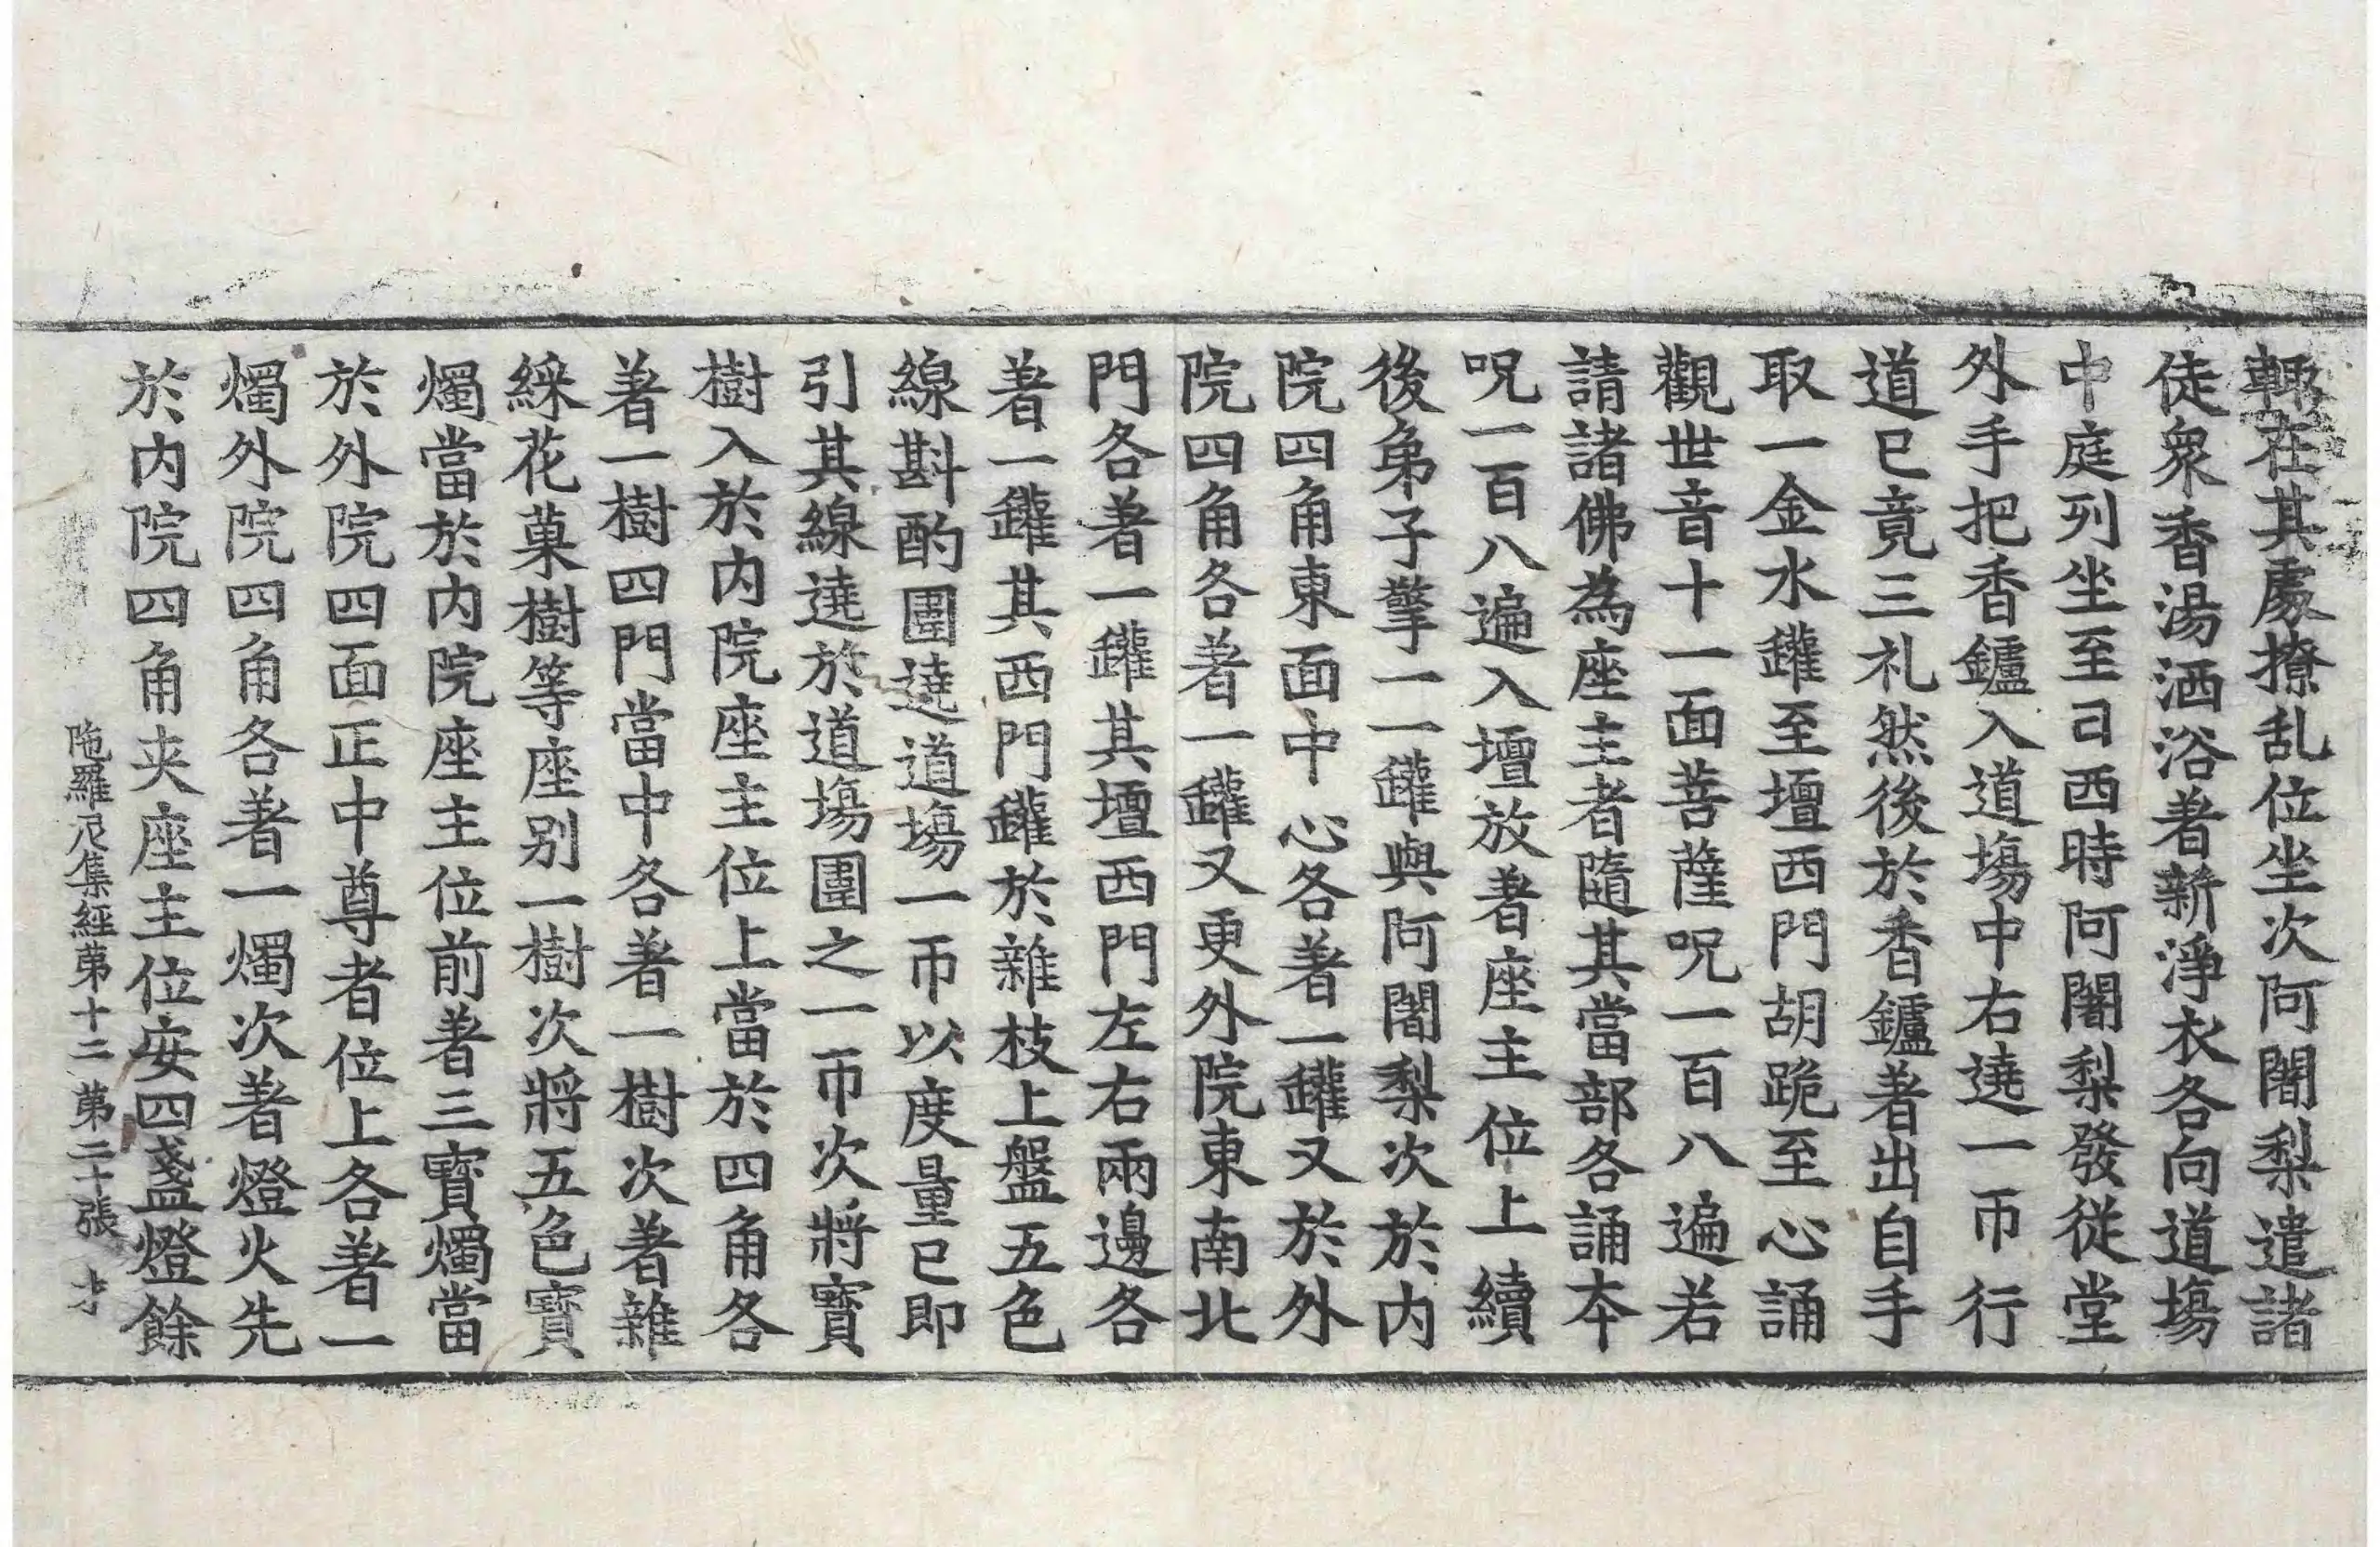 輙在其處撩乱位坐次阿闍梨遣諸
徒衆香湯洒浴著新淨衣各向道場
中庭列坐至日西時阿闍梨發從堂
外手把香鑪入道場中右遶一帀行
道已竟三礼然後於香鑪著出自手
取一金水罐至壇西門胡跪至心誦
觀世音十一面菩薩呪一百八遍若
請諸佛為座主者隨其當部各誦本
呪一百八遍入壇放著座主位上續
後弟子擎一一罐與阿闍梨次於内
院四角東面中心各著一罐又於外
院四角各著一罐又更外院東南北
門各著一罐其壇西門左右兩邊各
著一罐其西門罐於雜枝上盤五色
線斟酌圍遶道場一帀以度量已即
引其線遶於道場圍之一帀次將寶
樹入於内院座主位上當於四角各
著一樹四門當中各著一樹次著雜
綵花菓樹等座別一樹次將五色寶
燭當於内院座主位前著三寶燭當
於外院四面正中尊者位上各著一
燭外院四角各著一燭次著燈火先
於内院四角夾座主位安四盞燈餘
陁羅尼集經第十二 第二十張 才